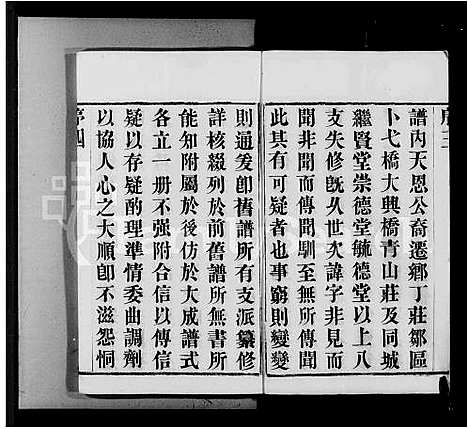 譜內天恩公裔遷鄉丁莊鄒區
卜弋橋大興橋青山莊及同城
繼賢堂崇德堂毓德堂以上八
支失修旣久世次諱字非見而
聞非聞而傳聞馴至無所傳聞
此其有可疑者也事窮則變變
則通爰卽舊譜所有支派纂修
詳核綴列於前舊譜所無書所
能知附屬於後仿於大成譜式
各立一册不辞合信以傳信
疑以存疑酌理準情委曲調劑
以協人心之大順卽不滋怨恫
序四